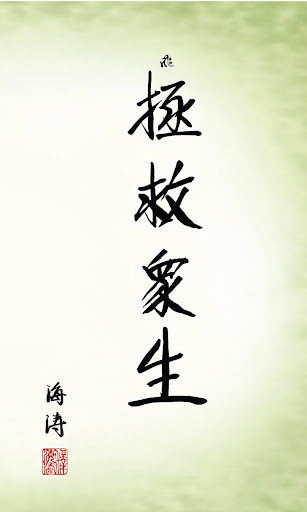 拯救眾生
海涛